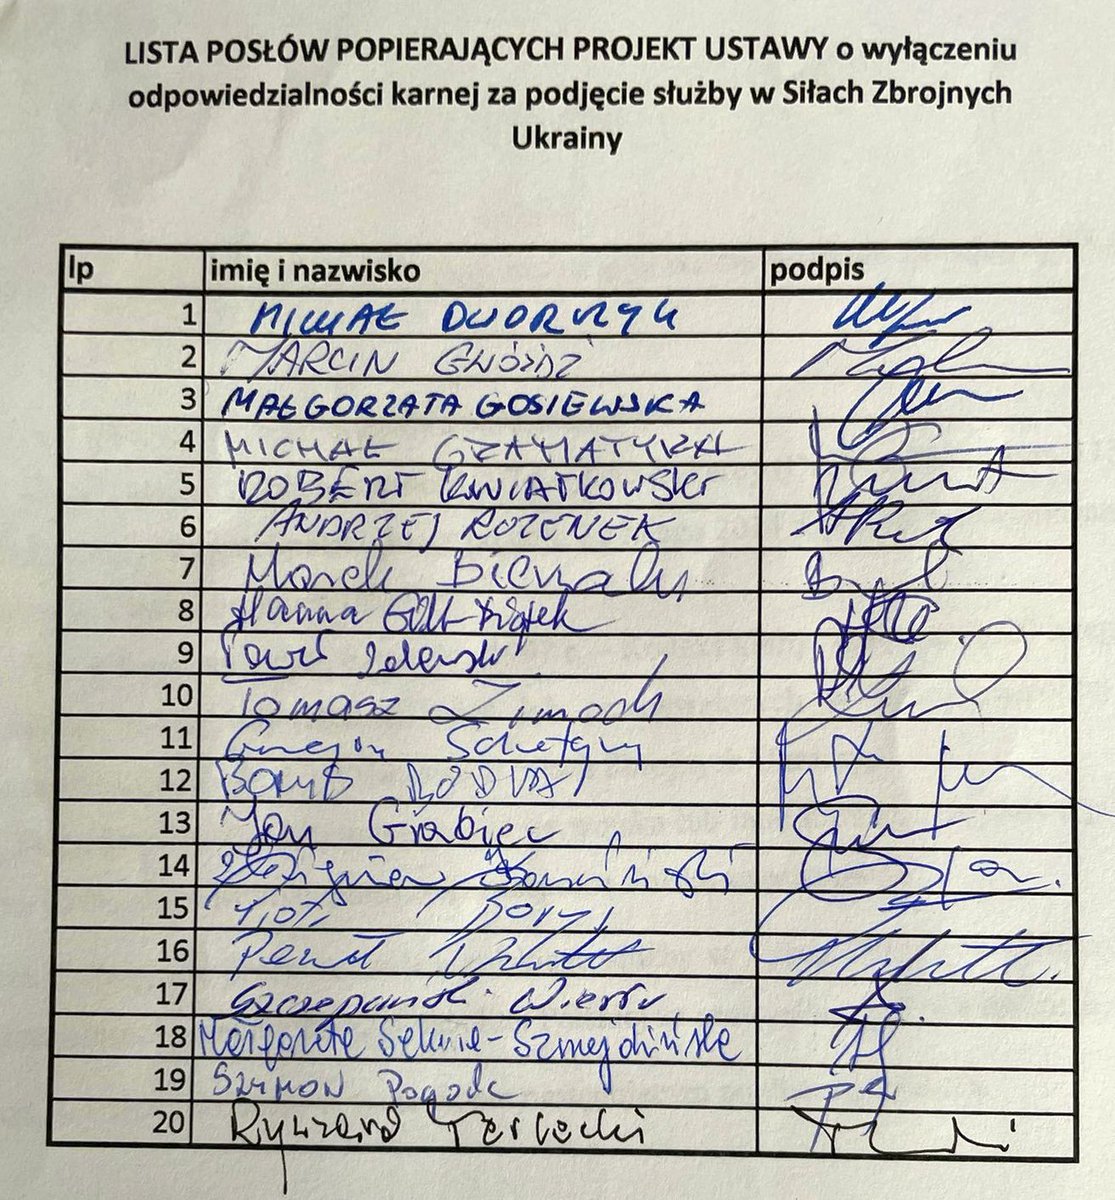 LISTA POSŁÓW POPIERAJĄCYCH PROJEKT USTAWY o wyłączeniu
odpowiedzialności karnej za podjęcie służby w Siłach Zbrojnych
Ukrainy
lp imię i nazwisko podpis
1 MICHAŁ DWORCZYK
2 MARCIN GWÓŹDŹ
3 MAŁGORZATA GOSIEWSKA
4 MICHAŁ GRAMATYKA
5 ROBERT KWIATKOWSKI
6 ANDRZEJ ROZENEK
7 Marek Biernacki
8 Hanna Gill-Piątek
9 Paweł Zalewski
10 Tomasz Zimoch
11 Grzegorz Schetyna
12 BORYS BUDKA
13 Jan Grabiec
14 Zbigniew
15 Piotr
16 Paweł
17 Szczepański Wiesław
18 Małgorzata Sekuła-Szmajdzińska
19 SZYMON Pogoda
20 Ryszard Terlecki